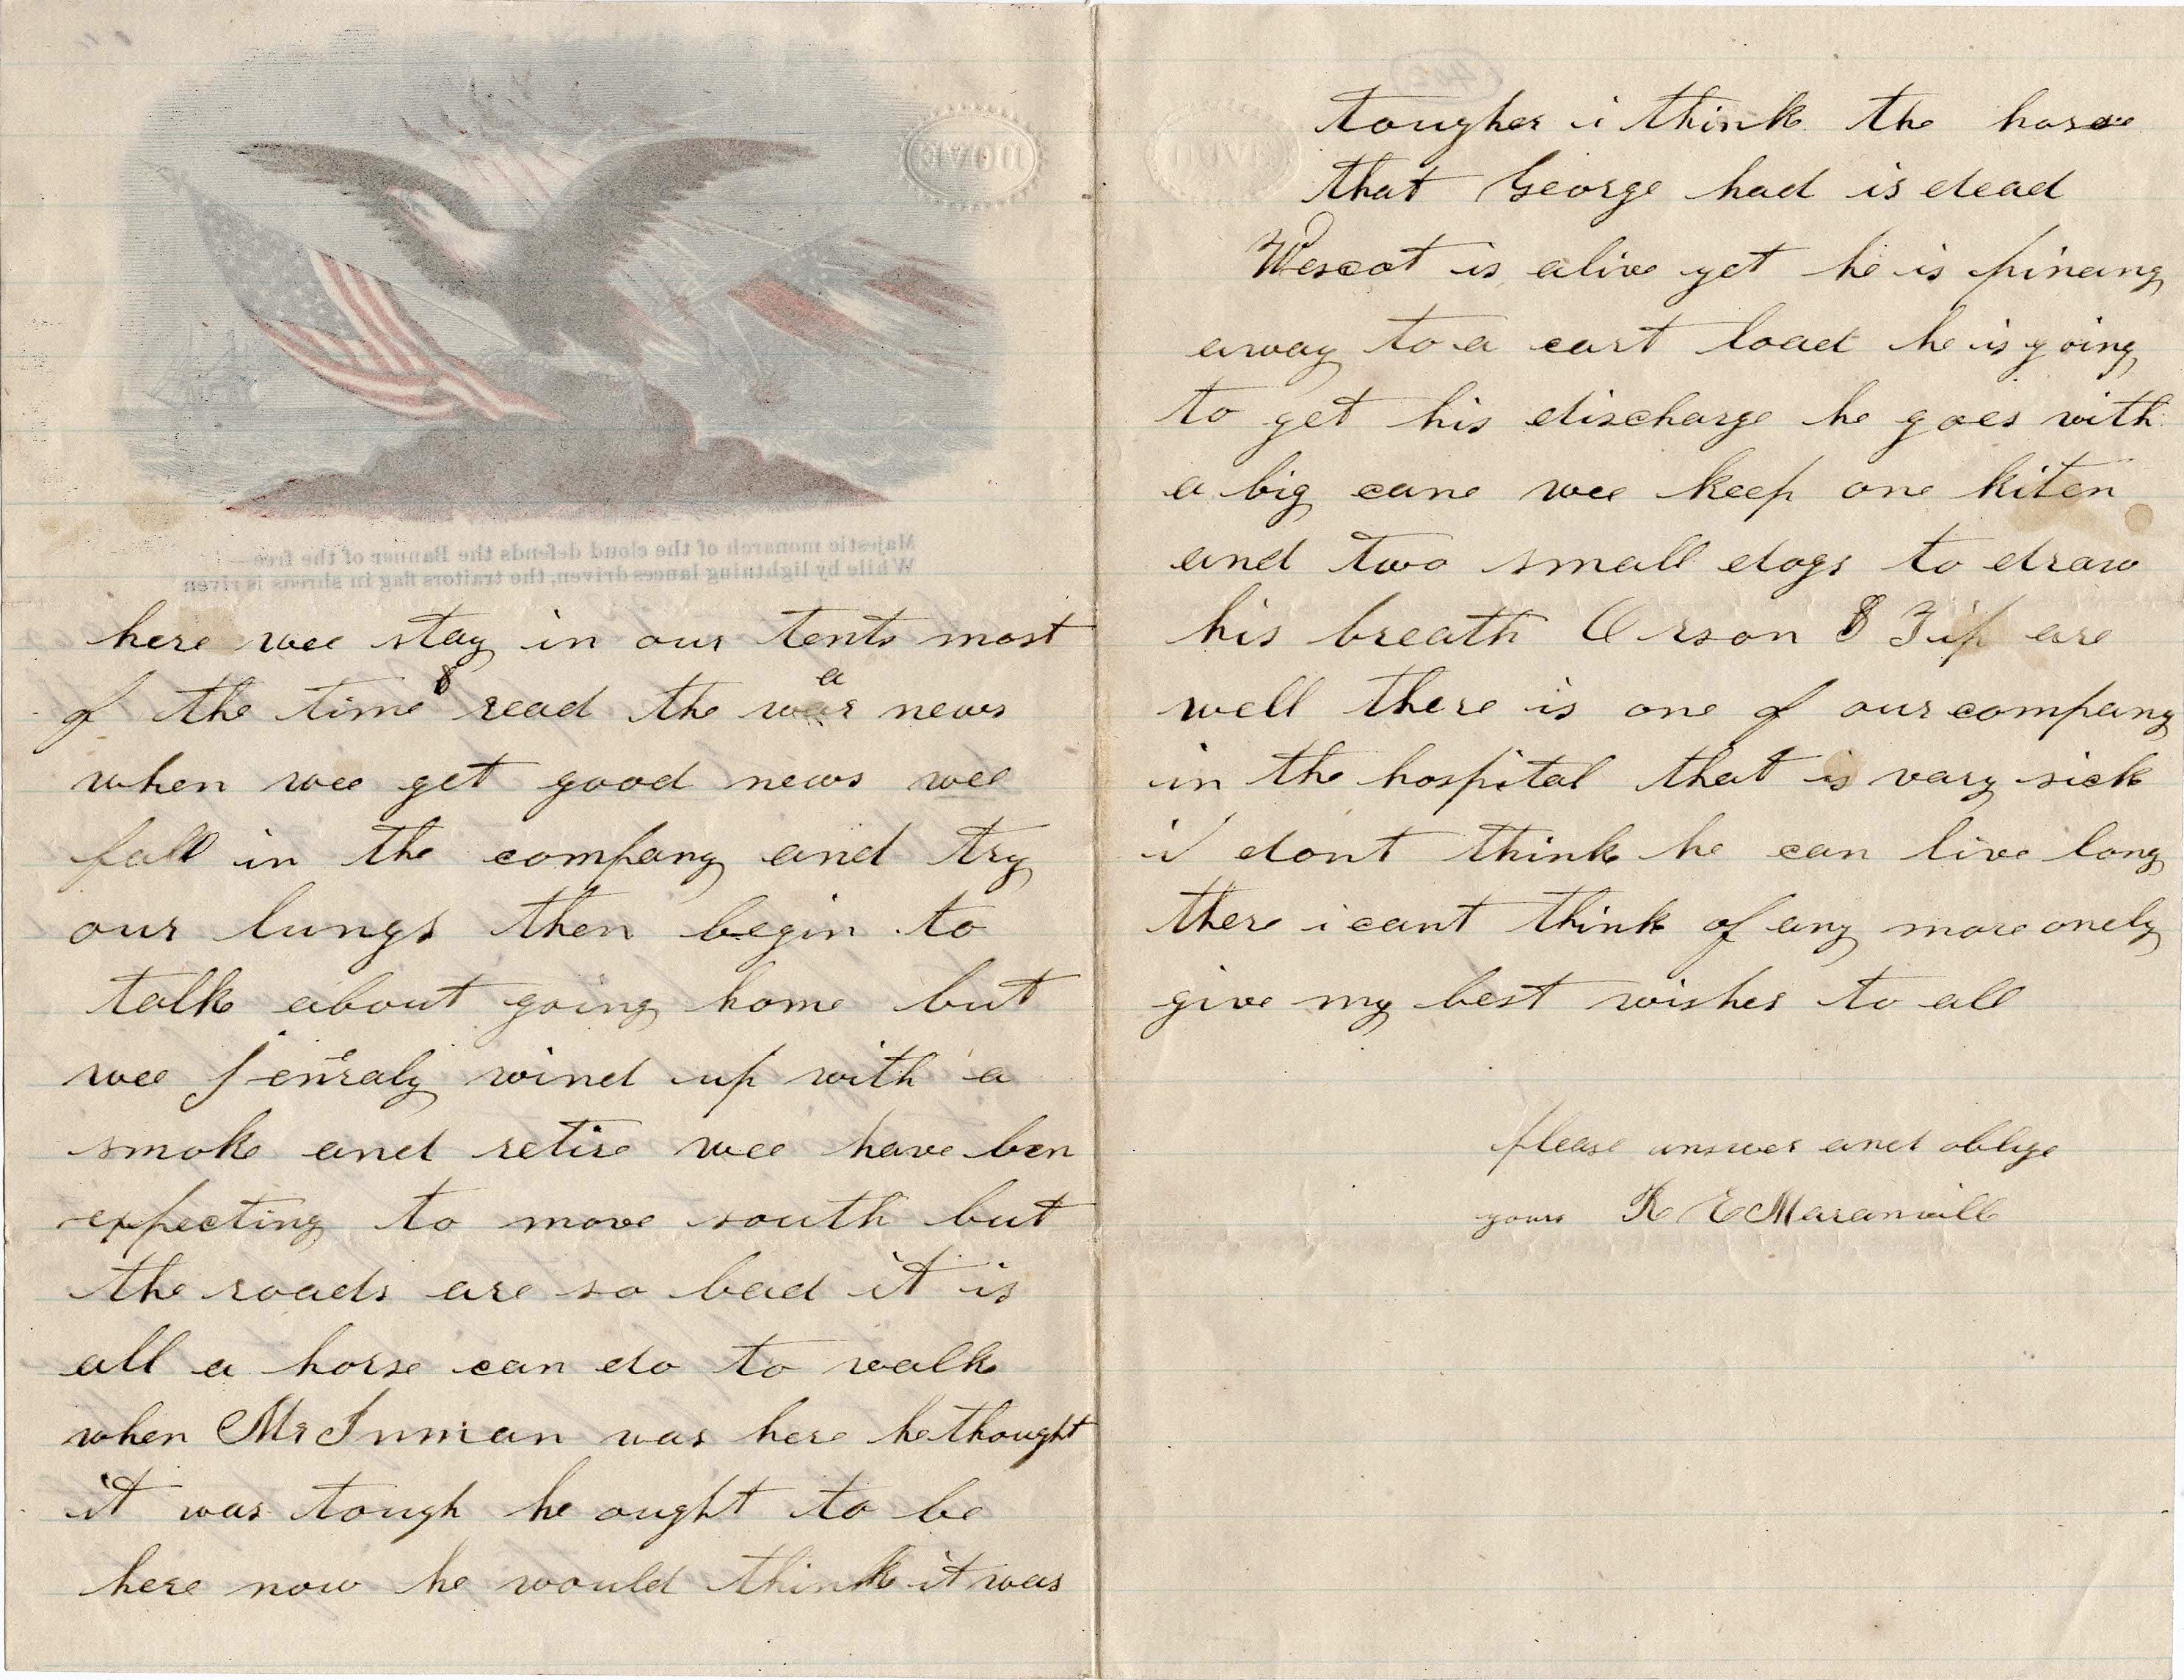 DOVE
Majestic monarch of the cloud defends the Banner of the free—
While by lightning lances driven, the traitors flag in shreds is riven
here wee stay in our tents most
of the time & read the war news
when wee get good news wee
fall in the company and try
our lungs then begin to
talk about going home but
wee jenraly wind up with a
smoke and retire wee have ben
expecting to move south but
the roads are so bad it is
all a horse can do to walk
when Mr Inman was here he thought
it was tough he ought to be
here now he would think it was
tougher i think the horse
that George had is dead
Wescot is alive yet he is pineing
away to a cart load he is going
to get his discharge he goes with
a big cane wee keep one kiten
and two small dogs to draw
his breath Orson & Zip are
well there is one of our company
in the hospital that is vary sick
i dont think he can live long
there i cant think of any more onely
give my best wishes to all
please answer and oblige
yours R E Maranvill